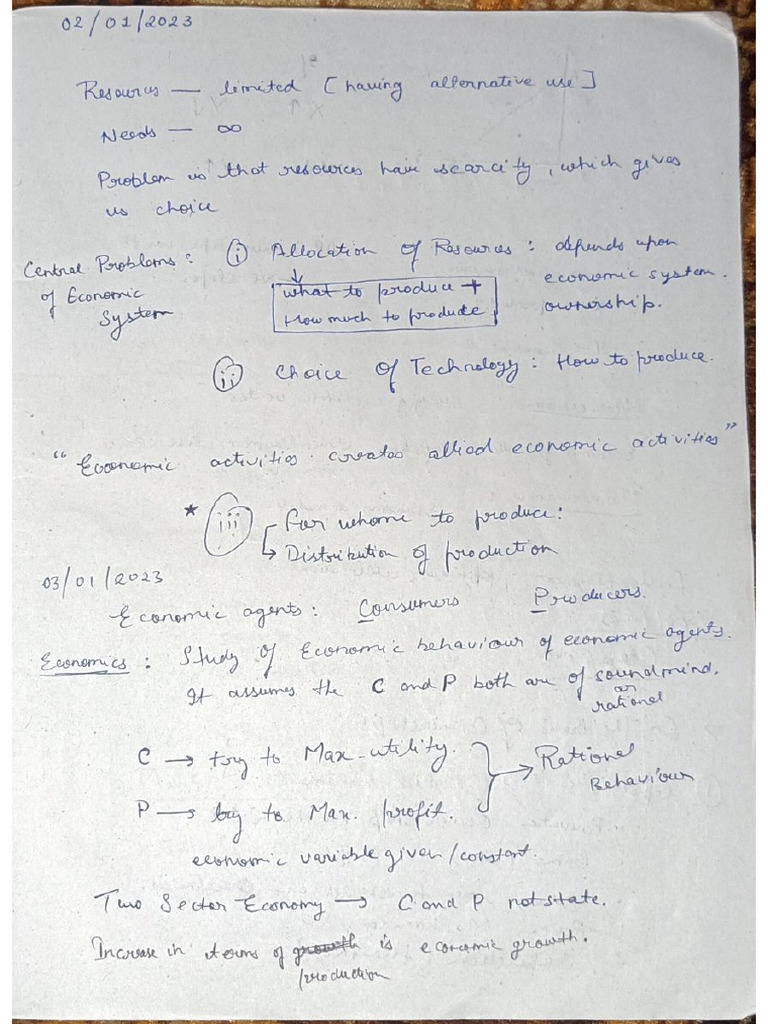 02/01/2023
Resources — limited [having alternative use]
Needs — ∞
Problem is that resources have scarcity, which gives
us choice
Central Problems: (i) Allocation of Resources: depends upon
of Economic
System
economic system.
ownership.
↓
what to produce +
How much to produce
(ii) Choice of Technology: How to produce.
"Economic activities creates allied economic activities"
★ (iii) For whome to produce:
↳ Distribution of production
03/01/2023
Economic agents: Consumers Producers.
Economics: Study of Economic behaviour of economic agents.
It assumes the C and P both are of sound mind,
or
rational
C → try to Max-utility.
} → Rational
Behaviour
P → try to Max. profit.
economic variable given/constant.
Two Sector Economy → C and P not state.
Increase in terms of growth is economic growth.
production